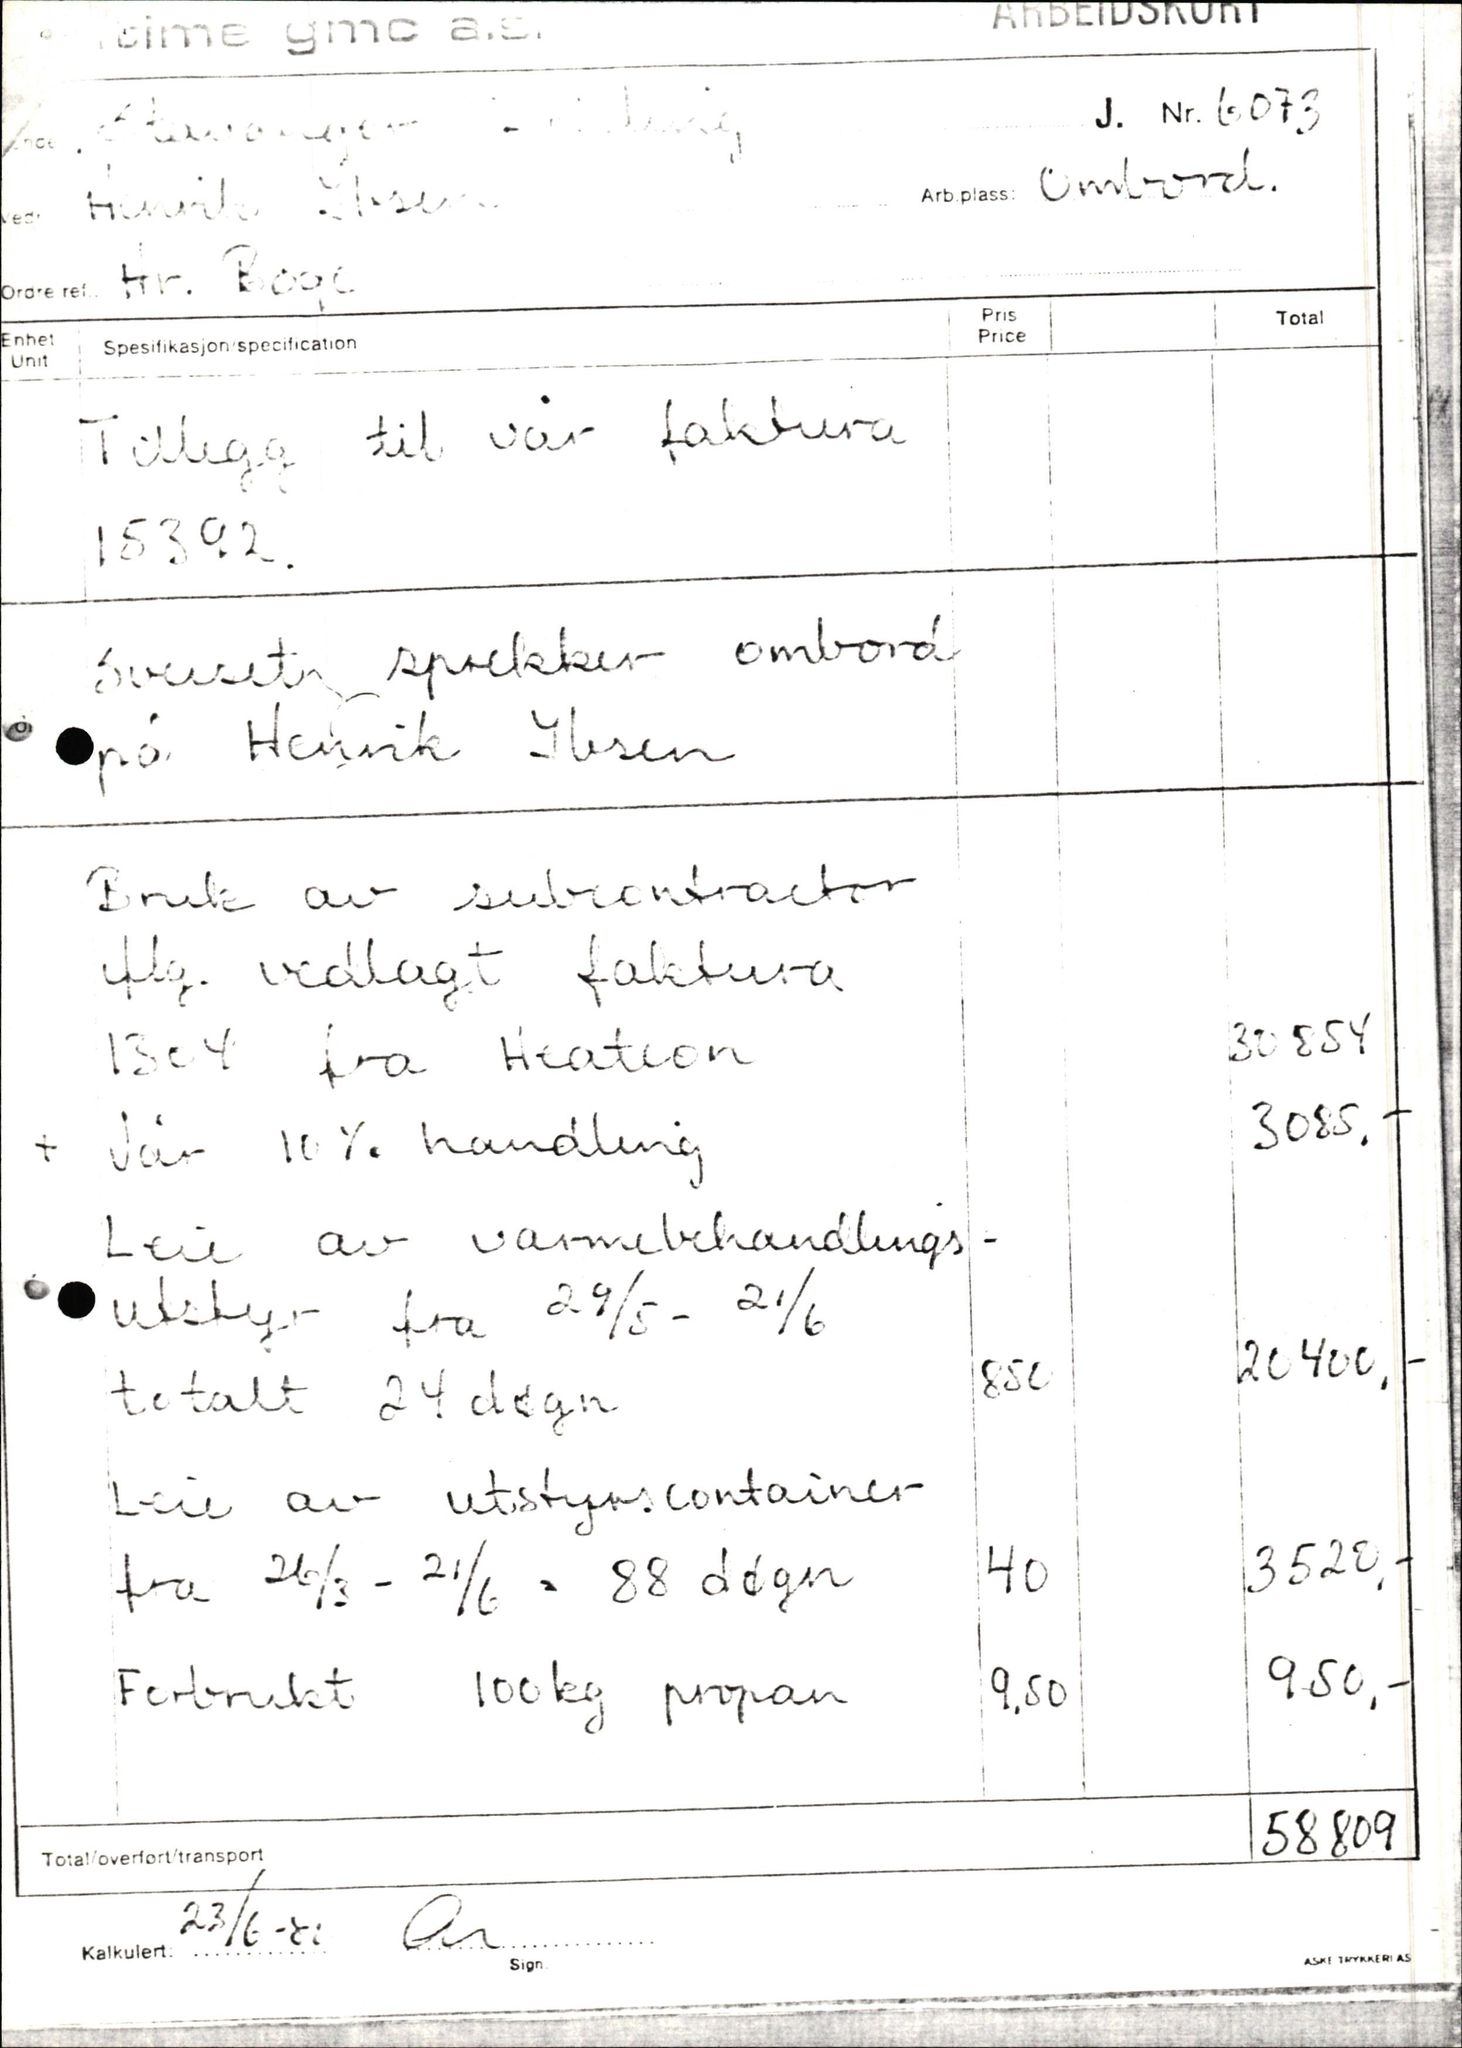 time gmc a.s.
ARBEIDSKORT
Stavanger
J. Nr. 6073
Ved: Henrik Ibsen
Arb.plass: Ombord.
Ordre ref.: Hr. Boge
Enhet Unit
Spesifikasjon/specification
Pris Price
Total
Tillegg til vår faktura
15392.
Sveiset sprekker ombord
på Henrik Ibsen
Bruk av subcontractor
iflg. vedlagt faktura
1304 fra Heateon 30854
+ Vår 10% handling 3085,-
Leie av varmebehandlings-
utstyr fra 29/5 - 21/6
totalt 24 døgn 850 20400,-
Leie av utstyrscontainer
fra 26/3 - 21/6 = 88 døgn 40 3520,-
Forbrukt 100kg propan 9,50 950,-
Total/overført/transport 58809
Kalkulert: 23/6-81
Sign.
ASKE TRYKKERI AS